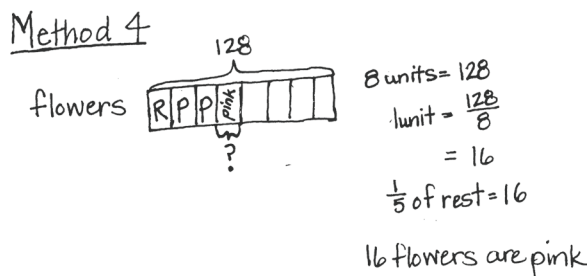 Method 4
128
flowers R P P pink
?
8 units = 128
1 unit = 128/8
= 16
1/5 of rest = 16
16 flowers are pink